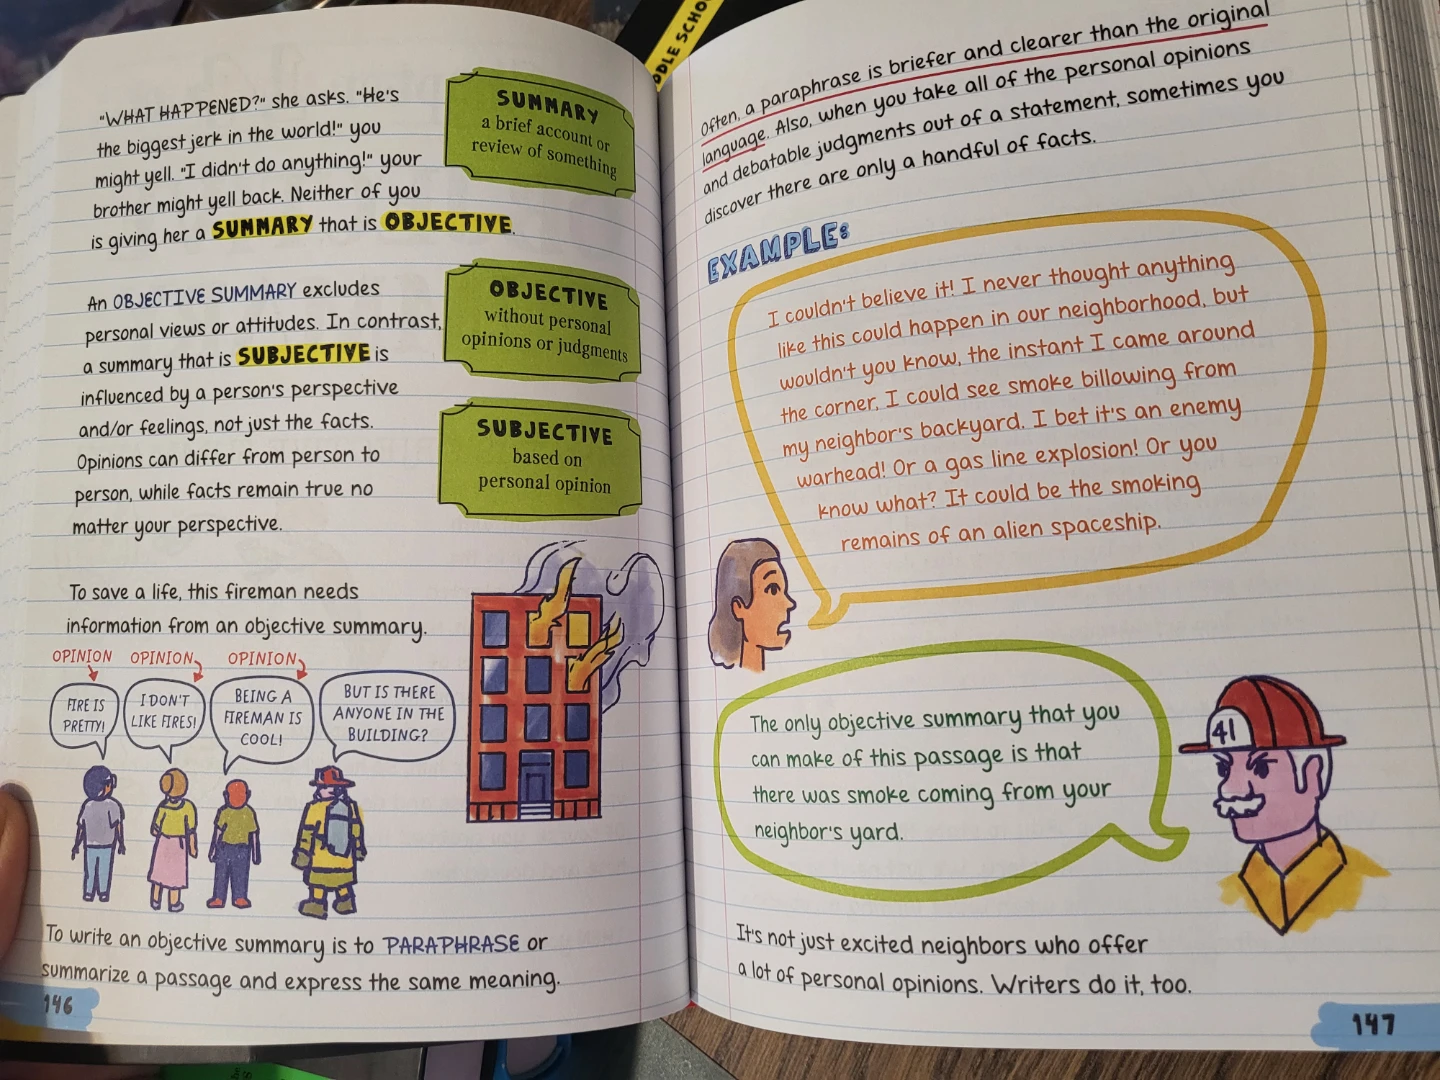 "WHAT HAPPENED?" she asks. "He's
the biggest jerk in the world!" you
might yell. "I didn't do anything!" your
brother might yell back. Neither of you
is giving her a SUMMARY that is OBJECTIVE.
SUMMARY
a brief account or
review of something
An OBJECTIVE SUMMARY excludes
personal views or attitudes. In contrast,
a summary that is SUBJECTIVE is
influenced by a person's perspective
and/or feelings, not just the facts.
Opinions can differ from person to
person, while facts remain true no
matter your perspective.
OBJECTIVE
without personal
opinions or judgments
SUBJECTIVE
based on
personal opinion
To save a life, this fireman needs
information from an objective summary.
OPINION
OPINION
OPINION
FIRE IS
PRETTY!
I DON'T
LIKE FIRES!
BEING A
FIREMAN IS
COOL!
BUT IS THERE
ANYONE IN THE
BUILDING?
To write an objective summary is to PARAPHRASE or
summarize a passage and express the same meaning.
146
DDLE SCHOO
Often, a paraphrase is briefer and clearer than the original
language. Also, when you take all of the personal opinions
and debatable judgments out of a statement, sometimes you
discover there are only a handful of facts.
EXAMPLE:
I couldn't believe it! I never thought anything
like this could happen in our neighborhood, but
wouldn't you know, the instant I came around
the corner, I could see smoke billowing from
my neighbor's backyard. I bet it's an enemy
warhead! Or a gas line explosion! Or you
know what? It could be the smoking
remains of an alien spaceship.
The only objective summary that you
can make of this passage is that
there was smoke coming from your
neighbor's yard.
41
It's not just excited neighbors who offer
a lot of personal opinions. Writers do it, too.
147